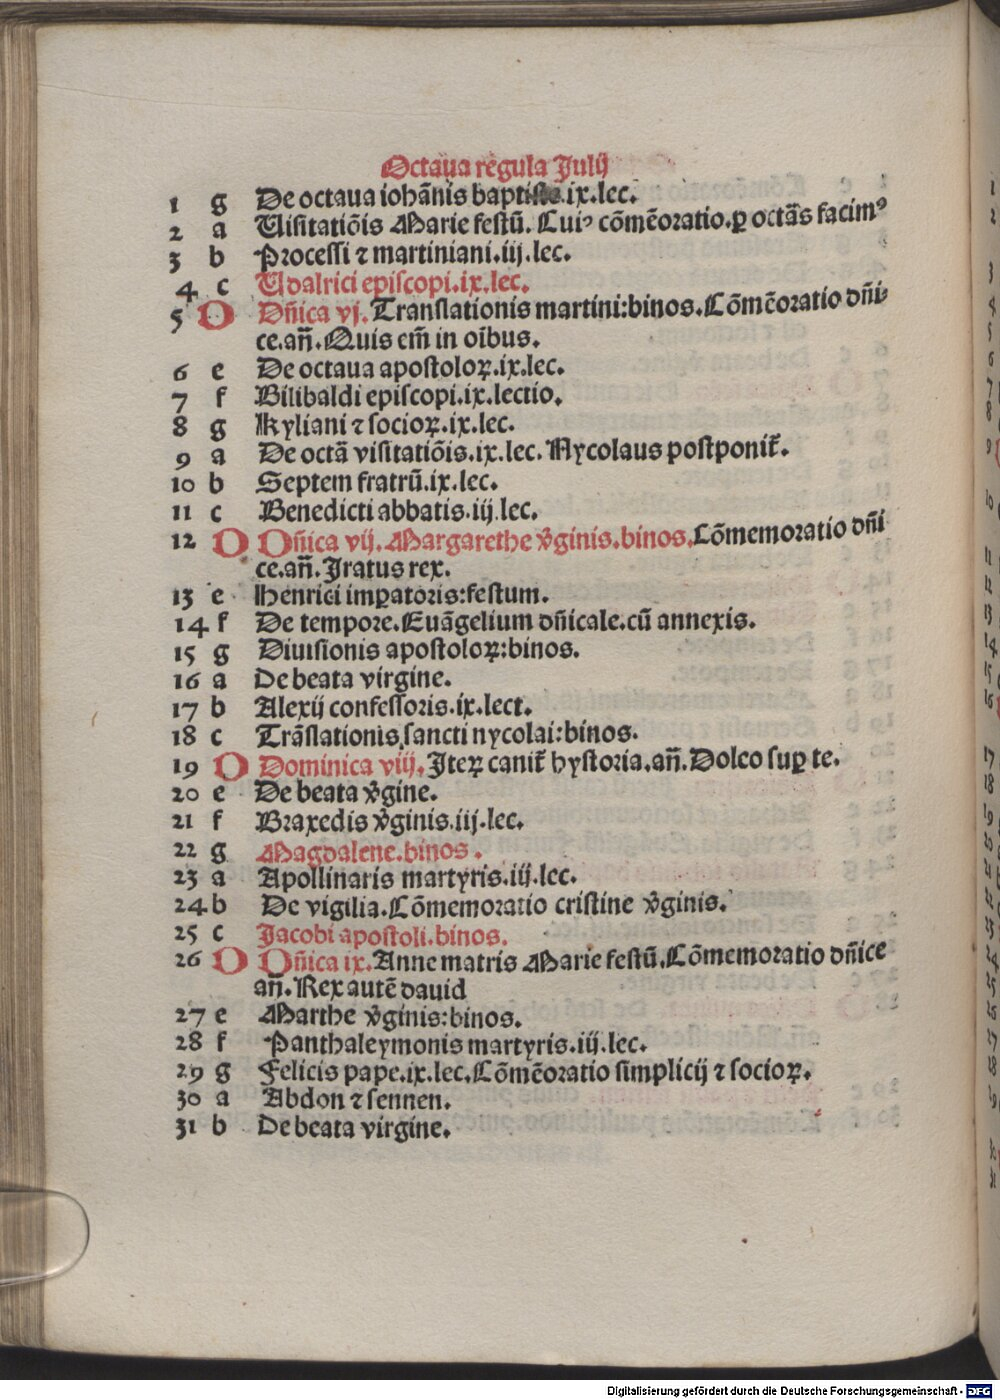 Octaua regula Julij
1 g De octaua iohānis baptiste.ix.lec.
2 a Uisitatiōis Marie festū. Cuiꝰ cōmēoratio.ꝑ octās facimꝰ
3 b Processi ⁊ martiniani.iij.lec.
4 c Udalrici episcopi.ix.lec.
5 D Dn̄ica vj. Translationis martini:binos. Cōmēoratio dn̄i-
ce.an̄. Quis em̄ in oībus.
6 e De octaua apostoloꝝ.ix.lec.
7 f Bilibaldi episcopi.ix.lectio.
8 g Kyliani ⁊ socioꝝ.ix.lec.
9 a De octā visitatiōis.ix.lec. Nycolaus postponit̄.
10 b Septem fratrū.ix.lec.
11 c Benedicti abbatis.iij.lec.
12 D Dn̄ica vij. Margarethe v̄ginis.binos. Cōmemoratio dn̄i
ce.an̄. Iratus rex.
13 e Henrici imꝑatoris:festum.
14 f De tempore. Euāgelium dn̄icale.cū annexis.
15 g Diuisionis apostoloꝝ:binos.
16 a De beata virgine.
17 b Alexij confessoris.ix.lect.
18 c Trāslationis sancti nycolai:binos.
19 D Dominica viij. Iteꝝ canit̄ hystoria.an̄. Doleo suꝑ te.
20 e De beata v̄gine.
21 f Braxedis v̄ginis.iij.lec.
22 g Magdalene.binos.
23 a Apollinaris martyris.iij.lec.
24 b De vigilia. Cōmemoratio cristine v̄ginis.
25 c Jacobi apostoli.binos.
26 D Dn̄ica ix. Anne matris Marie festū. Cōmemoratio dn̄ice
an̄. Rex autē dauid
27 e Marthe v̄ginis:binos.
28 f Panthaleymonis martyris.iij.lec.
29 g Felicis pape.ix.lec. Cōmēoratio simplicij ⁊ socioꝝ.
30 a Abdon ⁊ sennen.
31 b De beata virgine.
Digitalisierung gefördert durch die Deutsche Forschungsgemeinschaft - DFG